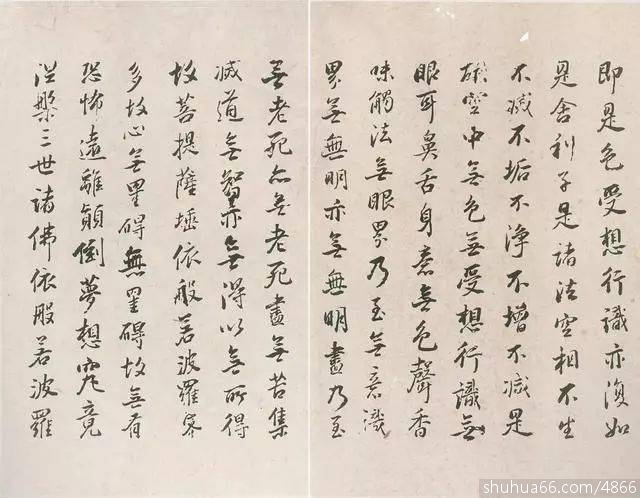 即是色受想行識亦復如
是舍利子是諸法空相不生
不滅不垢不淨不增不減是
故空中無色無受想行識無
眼耳鼻舌身意無色聲香
味觸法無眼界乃至無意識
界無無明亦無無明盡乃至
無老死亦無老死盡無苦集
滅道無智亦無得以無所得
故菩提薩埵依般若波羅蜜
多故心無罣碍無罣碍故無有
恐怖遠離顛倒夢想究竟
涅槃三世諸佛依般若波羅
shuhua66.com/4866